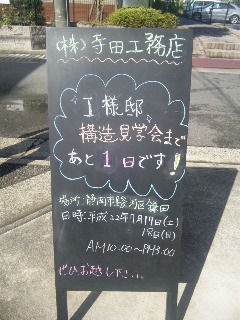 (株)寺田工務店
I様邸
構造見学会まで
あと1日です!
場所:静岡市駿河区鎌田
日時:平成22年7月17日(土)
18日(日)
AM10:00~PM3:00
ぜひお越し下さい